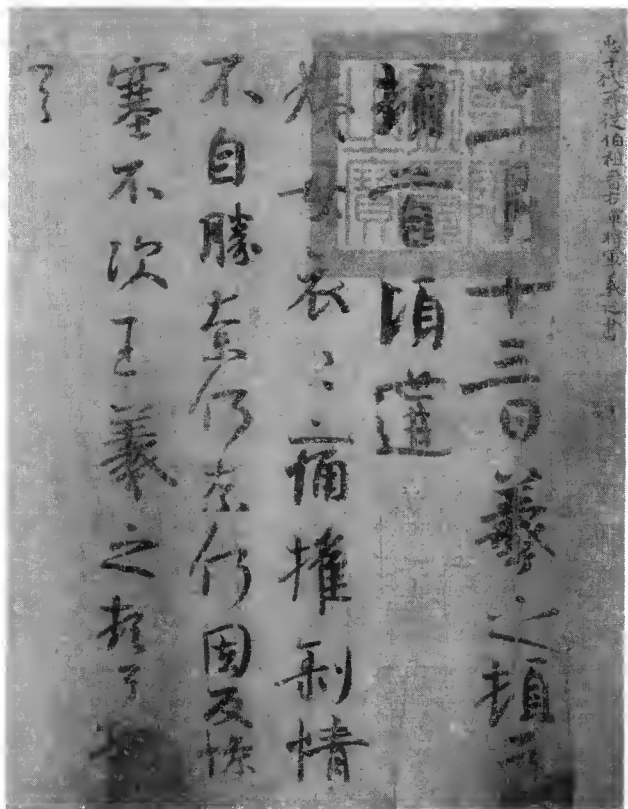 臣十代再從伯祖晉右軍將軍羲之書
十一月十三日羲之頓首
頓首頃遘
姨母哀〻痛摧剝情
不自勝奈何奈何因反慘
塞不次王羲之頓首頓
首